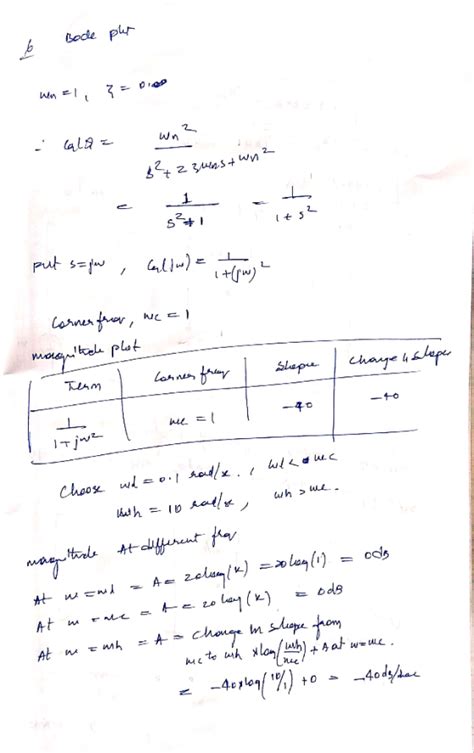 b Bode plot
wn = 1, ξ = 0.00
∴ G(s) = wn² / (s² + 2ξwns + wn²)
= 1/(s²+1) = 1/(1+s²)
put s=jw, G(jw) = 1/(1+(jw)²)
Corner freq, wc = 1
magnitude plot
Term | Corner freq | Slope | Change in slope
1/(1+jw²) | wc = 1 | -40 | -40
Choose wl = 0.1 rad/s, wl < wc
wh = 10 rad/s, wh > wc.
magnitude At different freq
At w = wl = A = 20log(K) = 20log(1) = 0db
At w = wc = A = 20log(K) = 0db
At w = wh = A = change in slope from
wc to wh × log(wh/wc) + A at w=wc.
= -40 × log(10/1) + 0 = -40db/dec